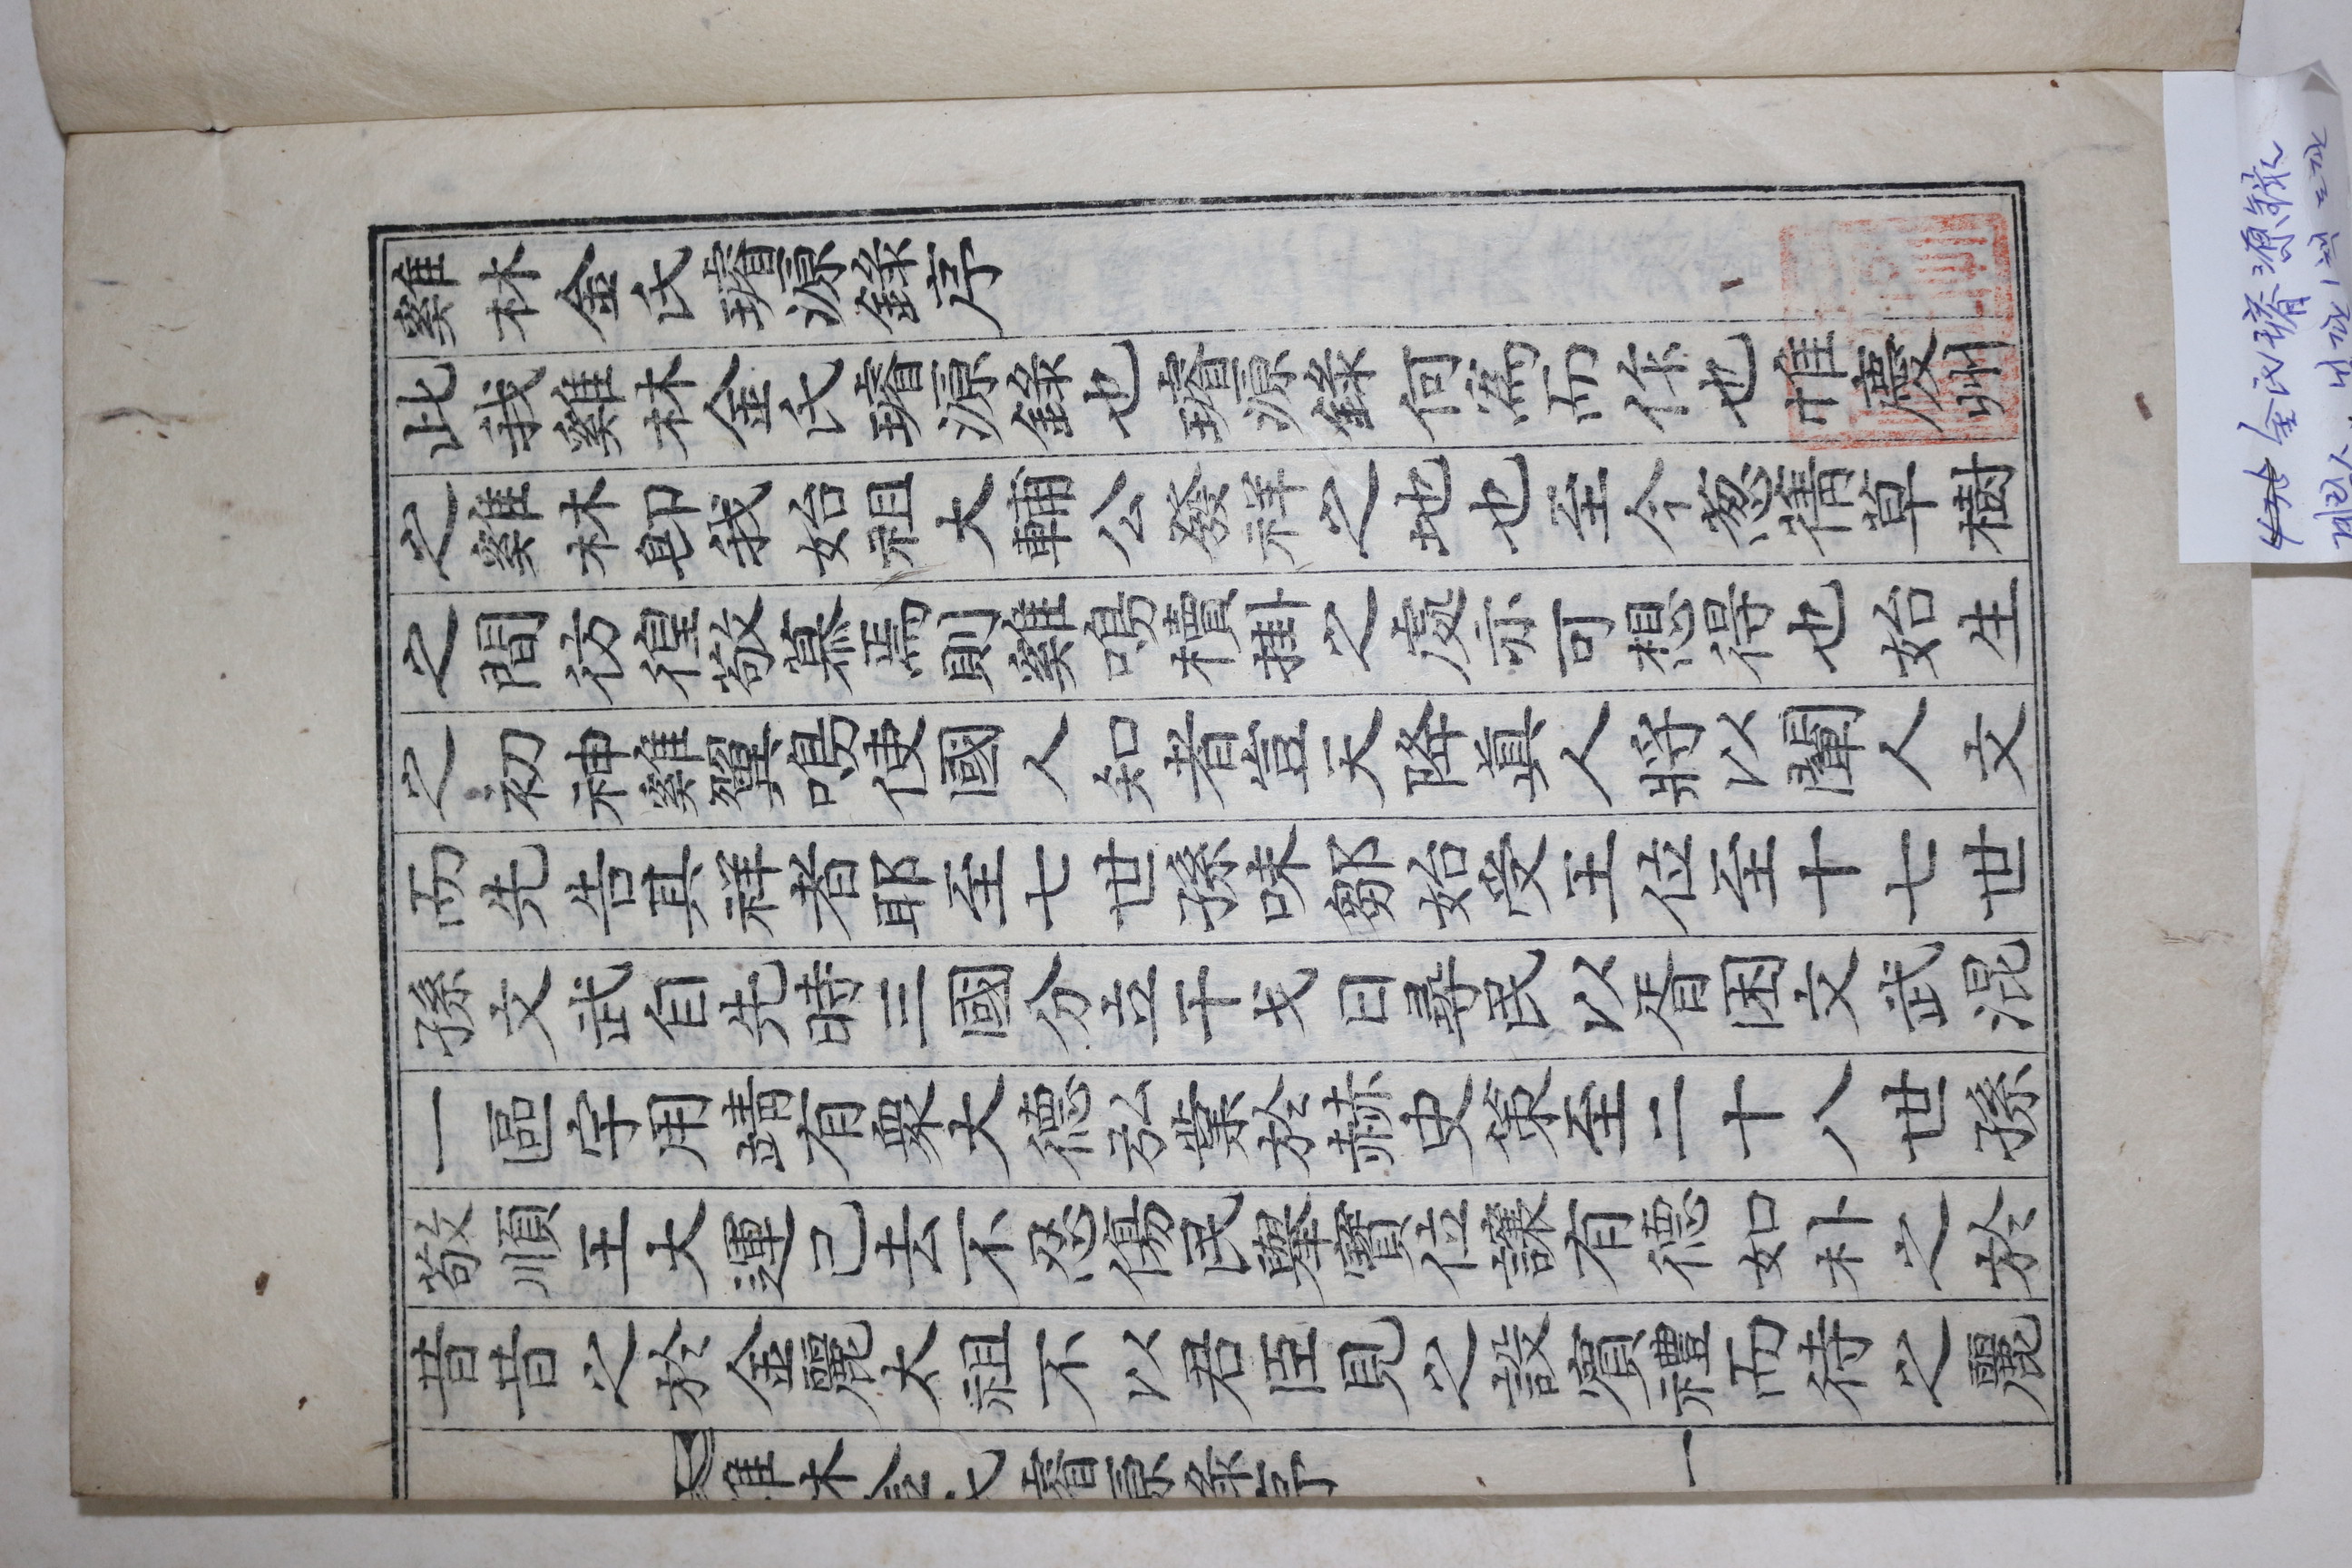 雞林金氏璿源錄序
此我雞林金氏璿源錄也璿源錄何爲而作也惟慶州
之雞林卽我始祖大輔公發祥之地也至今葱蒨草樹
之間彷徨敬慕焉則雞鳴櫝掛之處亦可想得也始生
之初神雞翼鳴使國人知者豈天降眞人將以闡人文
而先告其祥者耶至七世孫味鄒始受王位至十七世
孫文武自先時三國分立干戈日尋民以胥困文武混
一區宇用靖有衆大德弘業於赫史策至二十八世孫
敬順王大運已去不忍傷民舉寶位讓有德如朴之於
昔昔之於金麗太祖不以君臣見之設賓禮而待之麗
雞林金氏璿源錄序
一
金氏璿源錄